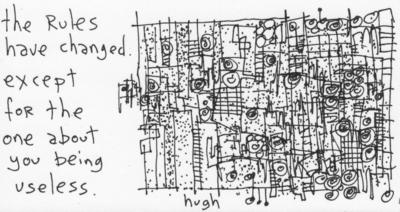 the Rules
have changed.
except
for the
one about
you being
useless.
hugh